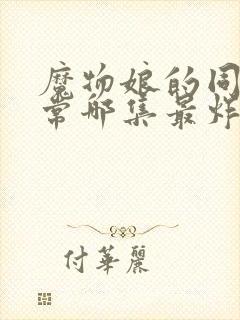 魔物娘的同
常哪集最炸
付華麗